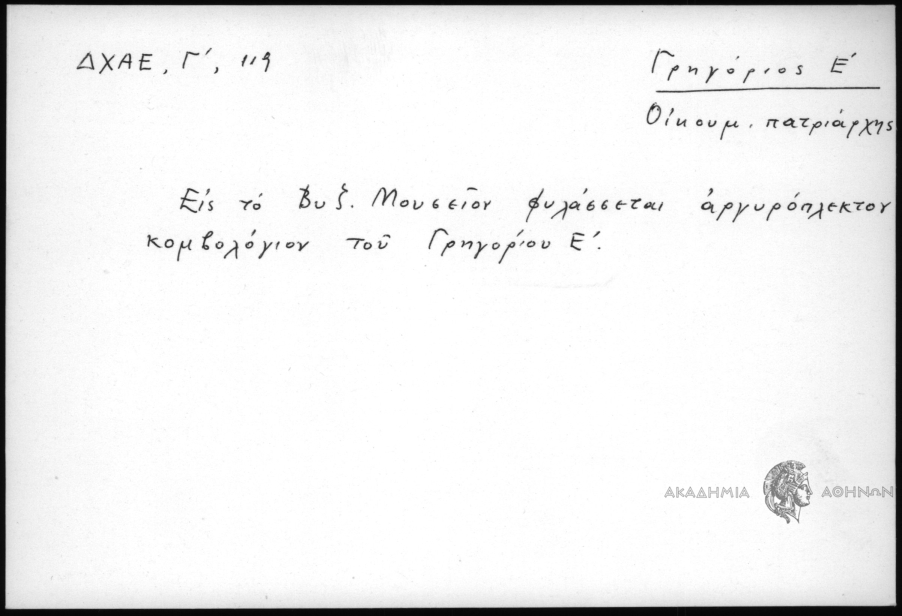 ΔΧΑΕ, Γ´, 119
Γρηγόριος Ε´
Οἰκουμ. πατριάρχης
Εἰς τό Βυζ. Μουσεῖον φυλάσσεται ἀργυρόπλεκτον
κομβολόγιον τοῦ Γρηγορίου Ε´.
ΑΚΑΔΗΜΙΑ ΑΘΗΝΩΝ